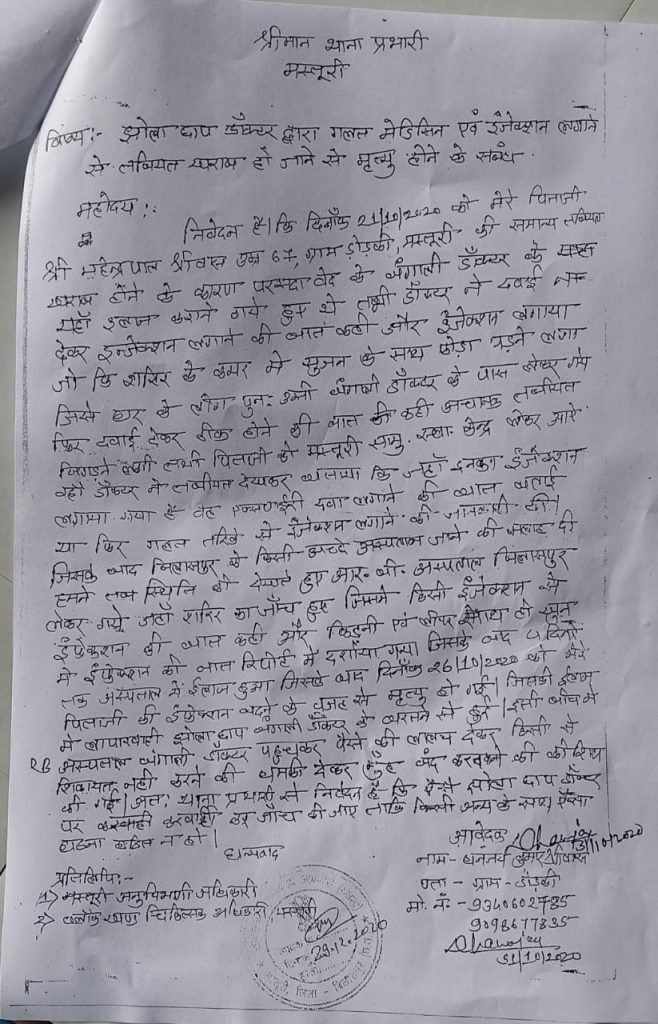 श्रीमान थाना प्रभारी
मस्तूरी
विषय:- झोला छाप डॉक्टर द्वारा गलत मेडिसिन एवं इंजेक्शन लगाने
से तबियत खराब हो जाने से मृत्यु होने के संबंध.
महोदय:-
निवेदन है कि दिनाँक 21/10/2020 को मेरे पिताजी
श्री महेन्द्रपाल श्रीवास उम्र 67, ग्राम डोड़की, मस्तूरी की समान्य तबियत
खराब होने के कारण परसदा वेद के बंगाली डॉक्टर के
यहाँ इलाज कराने गये हुए थे तभी डॉक्टर ने दवाई
देकर इन्जेक्शन लगाने की बात कही और इंजेक्शन लगाया
जो कि शरिर के कमर मे सुजन के साथ फोड़ा पड़ने लगा
जिसे घर के लोग पुनः उसी बंगाली डॉक्टर के पास लेकर गये
फिर दवाई देकर ठीक होने की बात कही अचानक तबीयत
बिगड़ने लगी तभी पिताजी को मस्तूरी समु. स्वा. केन्द्र लेकर आये
वहाँ डॉक्टर ने तबीयत देखकर बताया कि जहाँ इनका इंजेक्शन
लगाया गया है वह एक्सपाईरी दवा लगाने की बात बताई
या फिर गलत तरिके से इंजेक्शन लगाने की जानकारी दी।
जिसके बाद बिलासपुर के किसी अच्छे अस्पताल जाने की सलाह दी
हमने तब स्थिति को देखते हुए आर.बी. अस्पताल बिलासपुर
लेकर गये जहाँ शरिर का जाँच हुए जिसमे किसी इंजेक्शन से
इंफेक्शन की बात कही और किडनी एवं लीवर साथ ही खून
मे इंफेक्शन की बात रिपोर्ट मे दर्शाया गया जिसके बाद 4 दिनों
तक अस्पताल में ईलाज हुआ जिसके बाद दिनाँक 26/10/2020 को मेरे
पिताजी की इंफेक्शन बढ़ने के वजह से मृत्यु हो गई। जिसकी ईलाज
मे लापरवाही झोला छाप बंगाली डॉक्टर के से हुई। इसी बीच मे
अस्पताल बंगाली डॉक्टर पहुचकर पैसे की लालच देकर किसी से
शिकायत नही करने की धमकी देकर मुँह बंद करवाने की कोशिश
की गई। अतः थाना प्रभारी से निवेदन है कि ऐसे झोला छाप डॉक्टर
पर कार्यवाही करवाही कर जाँच की जाए ताकि किसी अन्य के साथ ऐसा
घटना घटित न हो।
धन्यवाद
आवेदक
31/10/2020
नाम - धनंजय कुमार श्रीवास
पता - ग्राम - डोड़की
मो. नं. - 9340602785
9098677835
31/10/2020
प्रतिलिपि:-
1) मस्तूरी अनुविभागी अधिकारी
2) ब्लॉक खण्ड चिकित्सक अधिकारी मस्तूरी
29.12.2020